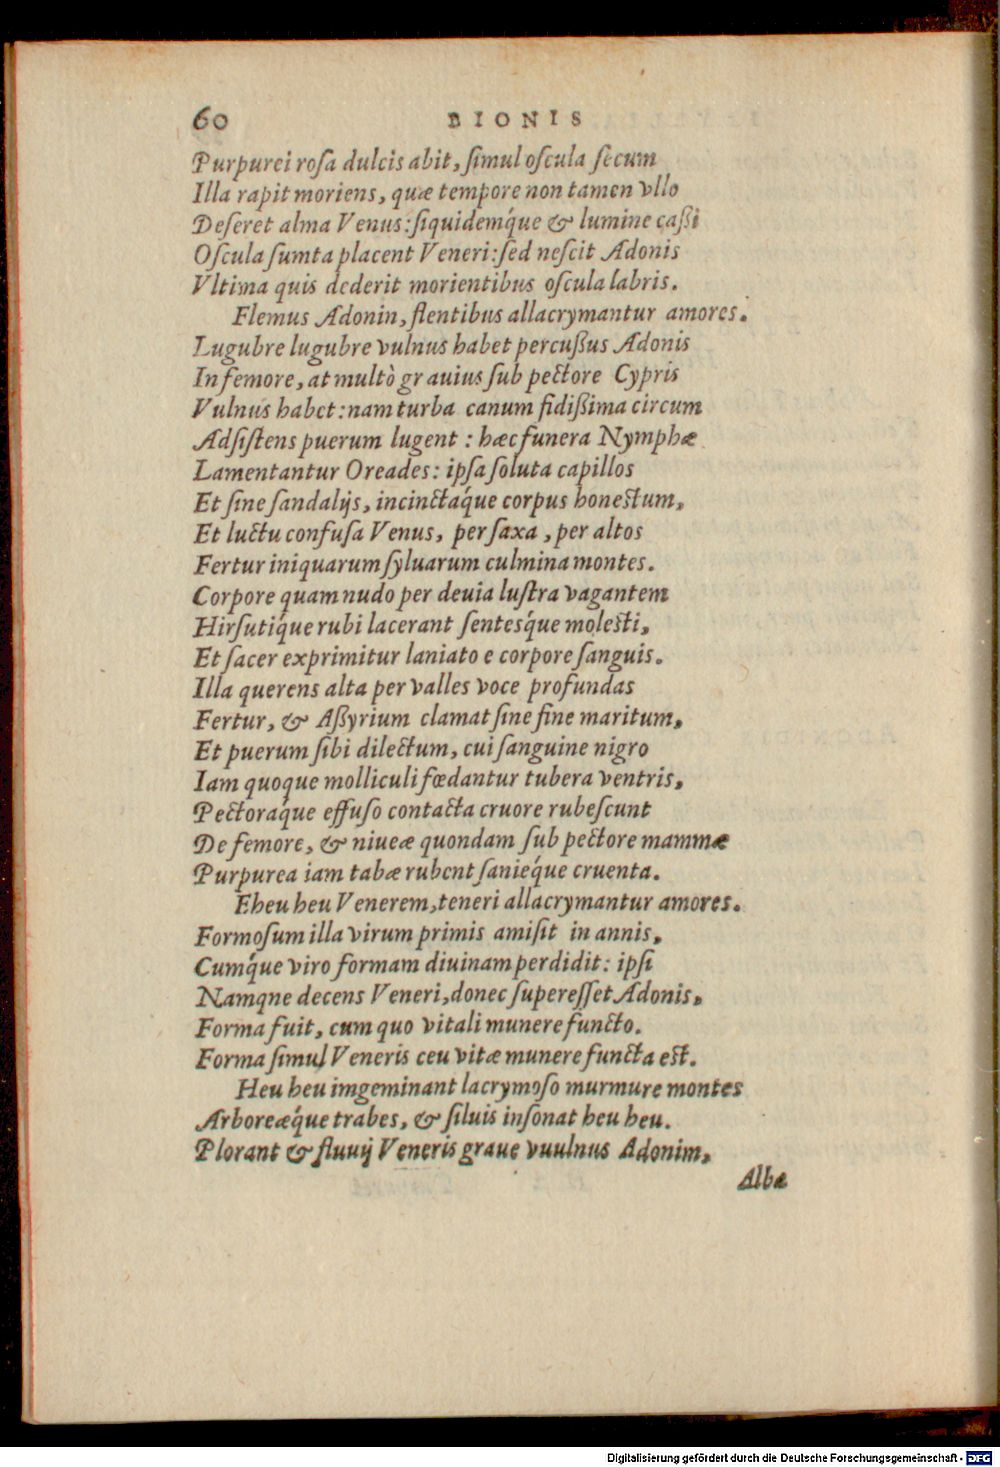 60 BIONIS
Purpurei rosa dulcis abit, simul oscula secum
Illa rapit moriens, quæ tempore non tamen vllo
Deseret alma Venus: siquidemq́ue & lumine caßi
Oscula sumta placent Veneri: sed nescit Adonis
Vltima quis dederit morientibus oscula labris.
Flemus Adonin, flentibus allacrymantur amores.
Lugubre lugubre vulnus habet percußus Adonis
In femore, at multò grauius sub pectore Cypris
Vulnus habet: nam turba canum fidißima circum
Adsistens puerum lugent: hæc funera Nymphæ
Lamentantur Oreades: ipsa soluta capillos
Et sine sandalijs, incinctaq́ue corpus honestum,
Et luctu confusa Venus, per saxa, per altos
Fertur iniquarum syluarum culmina montes.
Corpore quam nudo per deuia lustra vagantem
Hirsutiq́ue rubi lacerant sentesq́ue molesti,
Et sacer exprimitur laniato e corpore sanguis.
Illa querens alta per valles voce profundas
Fertur, & Aßyrium clamat sine fine maritum,
Et puerum sibi dilectum, cui sanguine nigro
Iam quoque molliculi fœdantur tubera ventris,
Pectoraq́ue effuso contacta cruore rubescunt
De femore, & niueæ quondam sub pectore mammæ
Purpurea iam tabæ rubent sanieq́ue cruenta.
Eheu heu Venerem, teneri allacrymantur amores.
Formosum illa virum primis amisit in annis,
Cumq́ue viro formam diuinam perdidit: ipsi
Namqne decens Veneri, donec superesset Adonis,
Forma fuit, cum quo vitali munere functo.
Forma simul Veneris ceu vitæ munere functa est.
Heu heu imgeminant lacrymoso murmure montes
Arboreæq́ue trabes, & siluis insonat heu heu.
Plorant & fluuij Veneris graue vuulnus Adonim,
Albæ
Digitalisierung gefördert durch die Deutsche Forschungsgemeinschaft - DFG